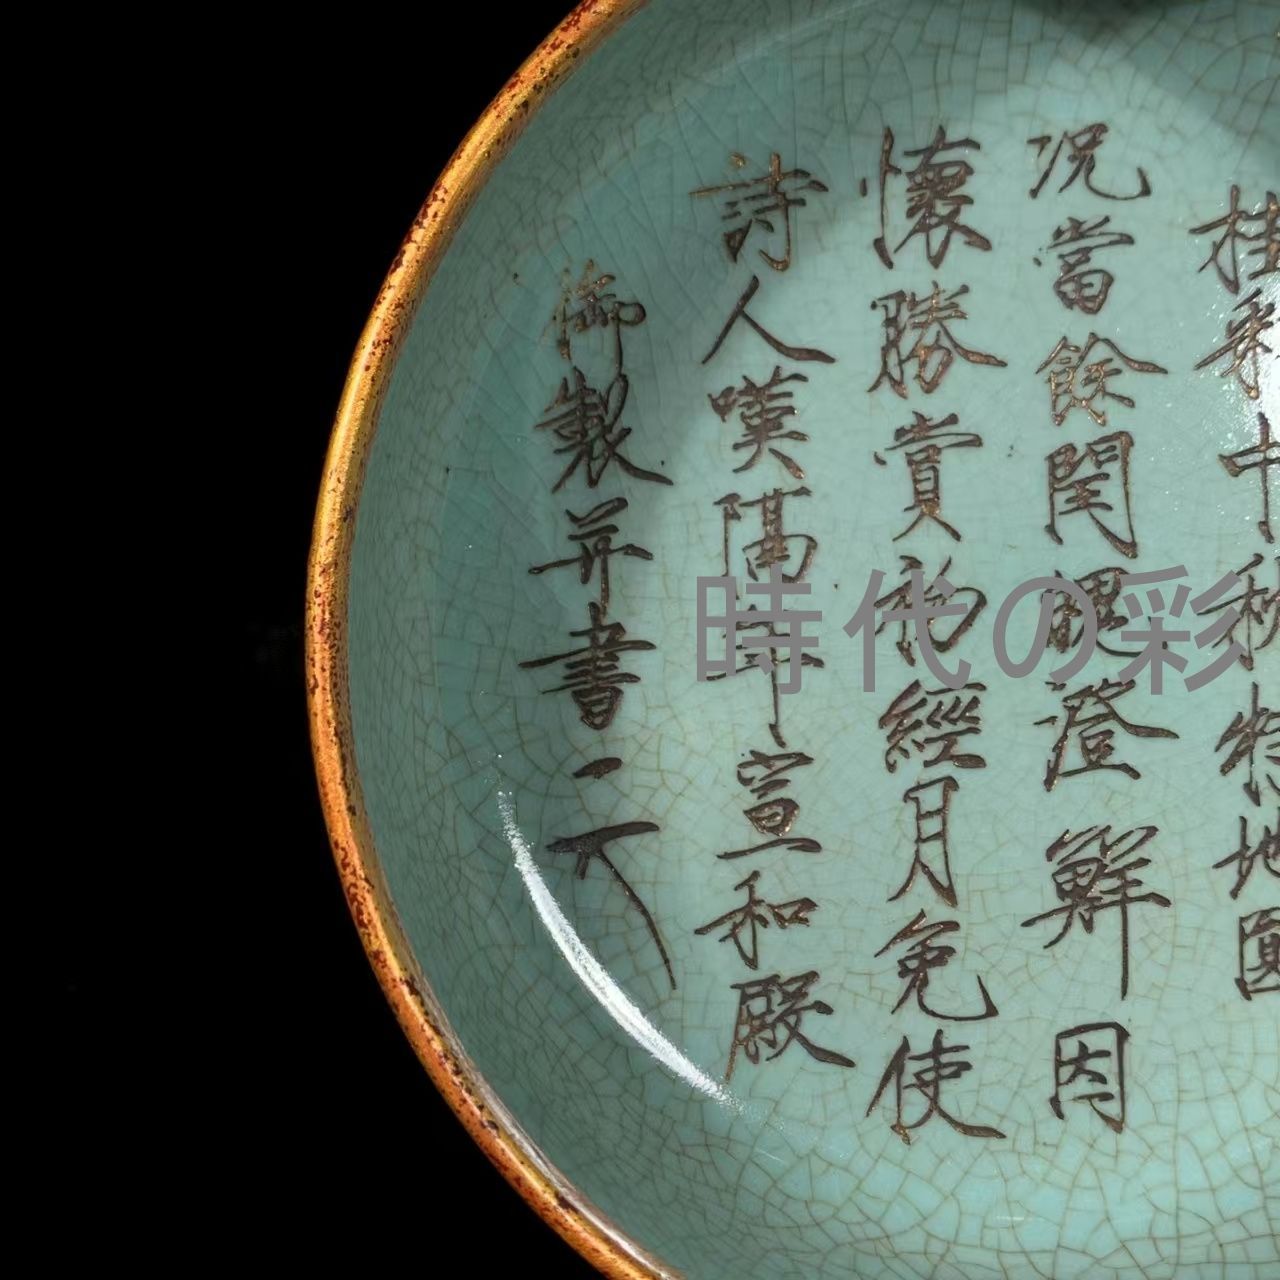 桂彩中秋特地圓
況當餘閏魄澄鮮因
懷勝賞初經月免使
詩人嘆隔年宣和殿
御製并書
時代の彩